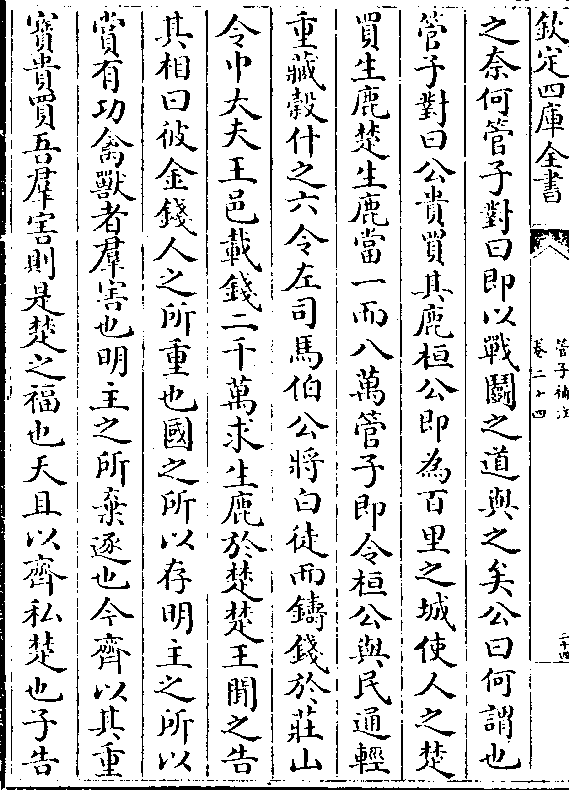 欽定四庫全書
管子補注
卷二十四
二十四
之奈何管子對曰即以戰鬭之道與之矣公曰何謂也
管子對曰公貴買其鹿桓公即為百里之城使人之楚
買生鹿楚生鹿當一而八萬管子即令桓公與民通輕
重藏榖什之六令左司馬伯公將白徒而鑄錢於莊山
令中大夫王邑載錢二千萬求生鹿於楚楚王聞之告
其相曰彼金錢人之所重也國之所以存明主之所以
賞有功禽獸者羣害也明主之所棄逐也今齊以其重
寳貴買吾羣害則是楚之福也天且以齊私楚也子告